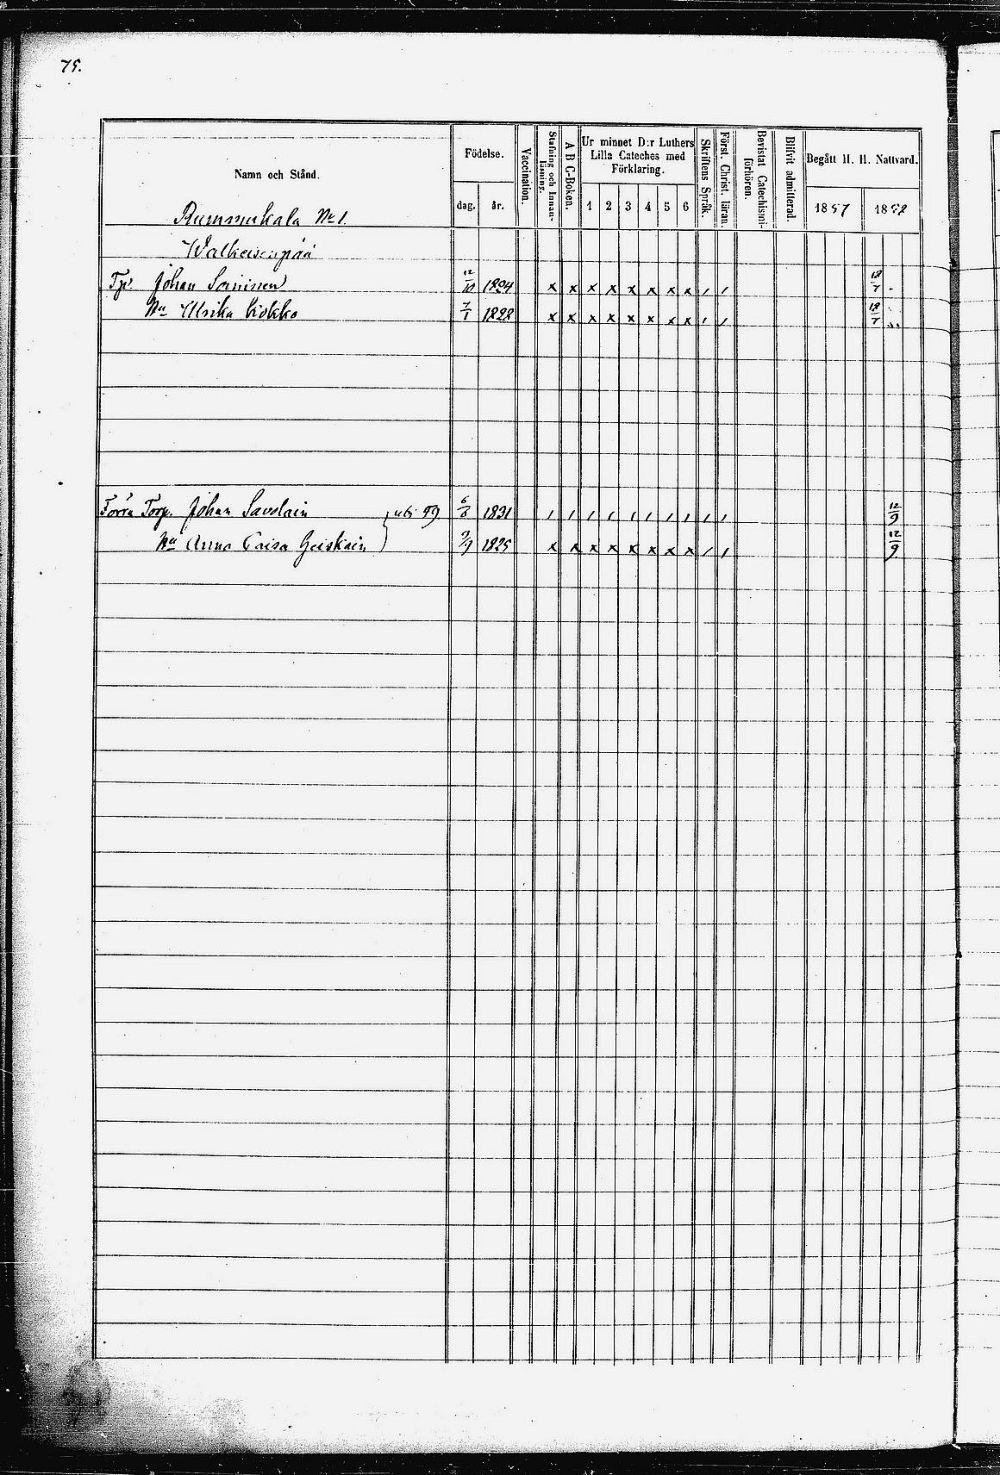 75.
Namn och Stånd.
Födelse.
dag. år.
Vaccination.
Stafning och Innanläsning.
A B C-Boken.
Ur minnet D:r Luthers
Lilla Cateches med
Förklaring.
1 2 3 4 5 6
Skriftens Språk.
Först. Christ. läran.
Bevistat Catechismi-
förhören.
Blifvit admitterad.
Begått H. H. Nattvard.
1857 1858
Rummukala No 1.
Walkeisenpää
Tp. Johan Soininen 12/10 1824 x x x x x x x x / / 18/7
Hu Ulrika Kokko 7/1 1822 x x x x x x x x / / 18/7
Förra Torp. Johan Savolain 6/8 1831 / / / / / / / / / / 12/9
Hu Anna Caisa Heiskain 2/9 1825 x x x x x x x x / / 12/9